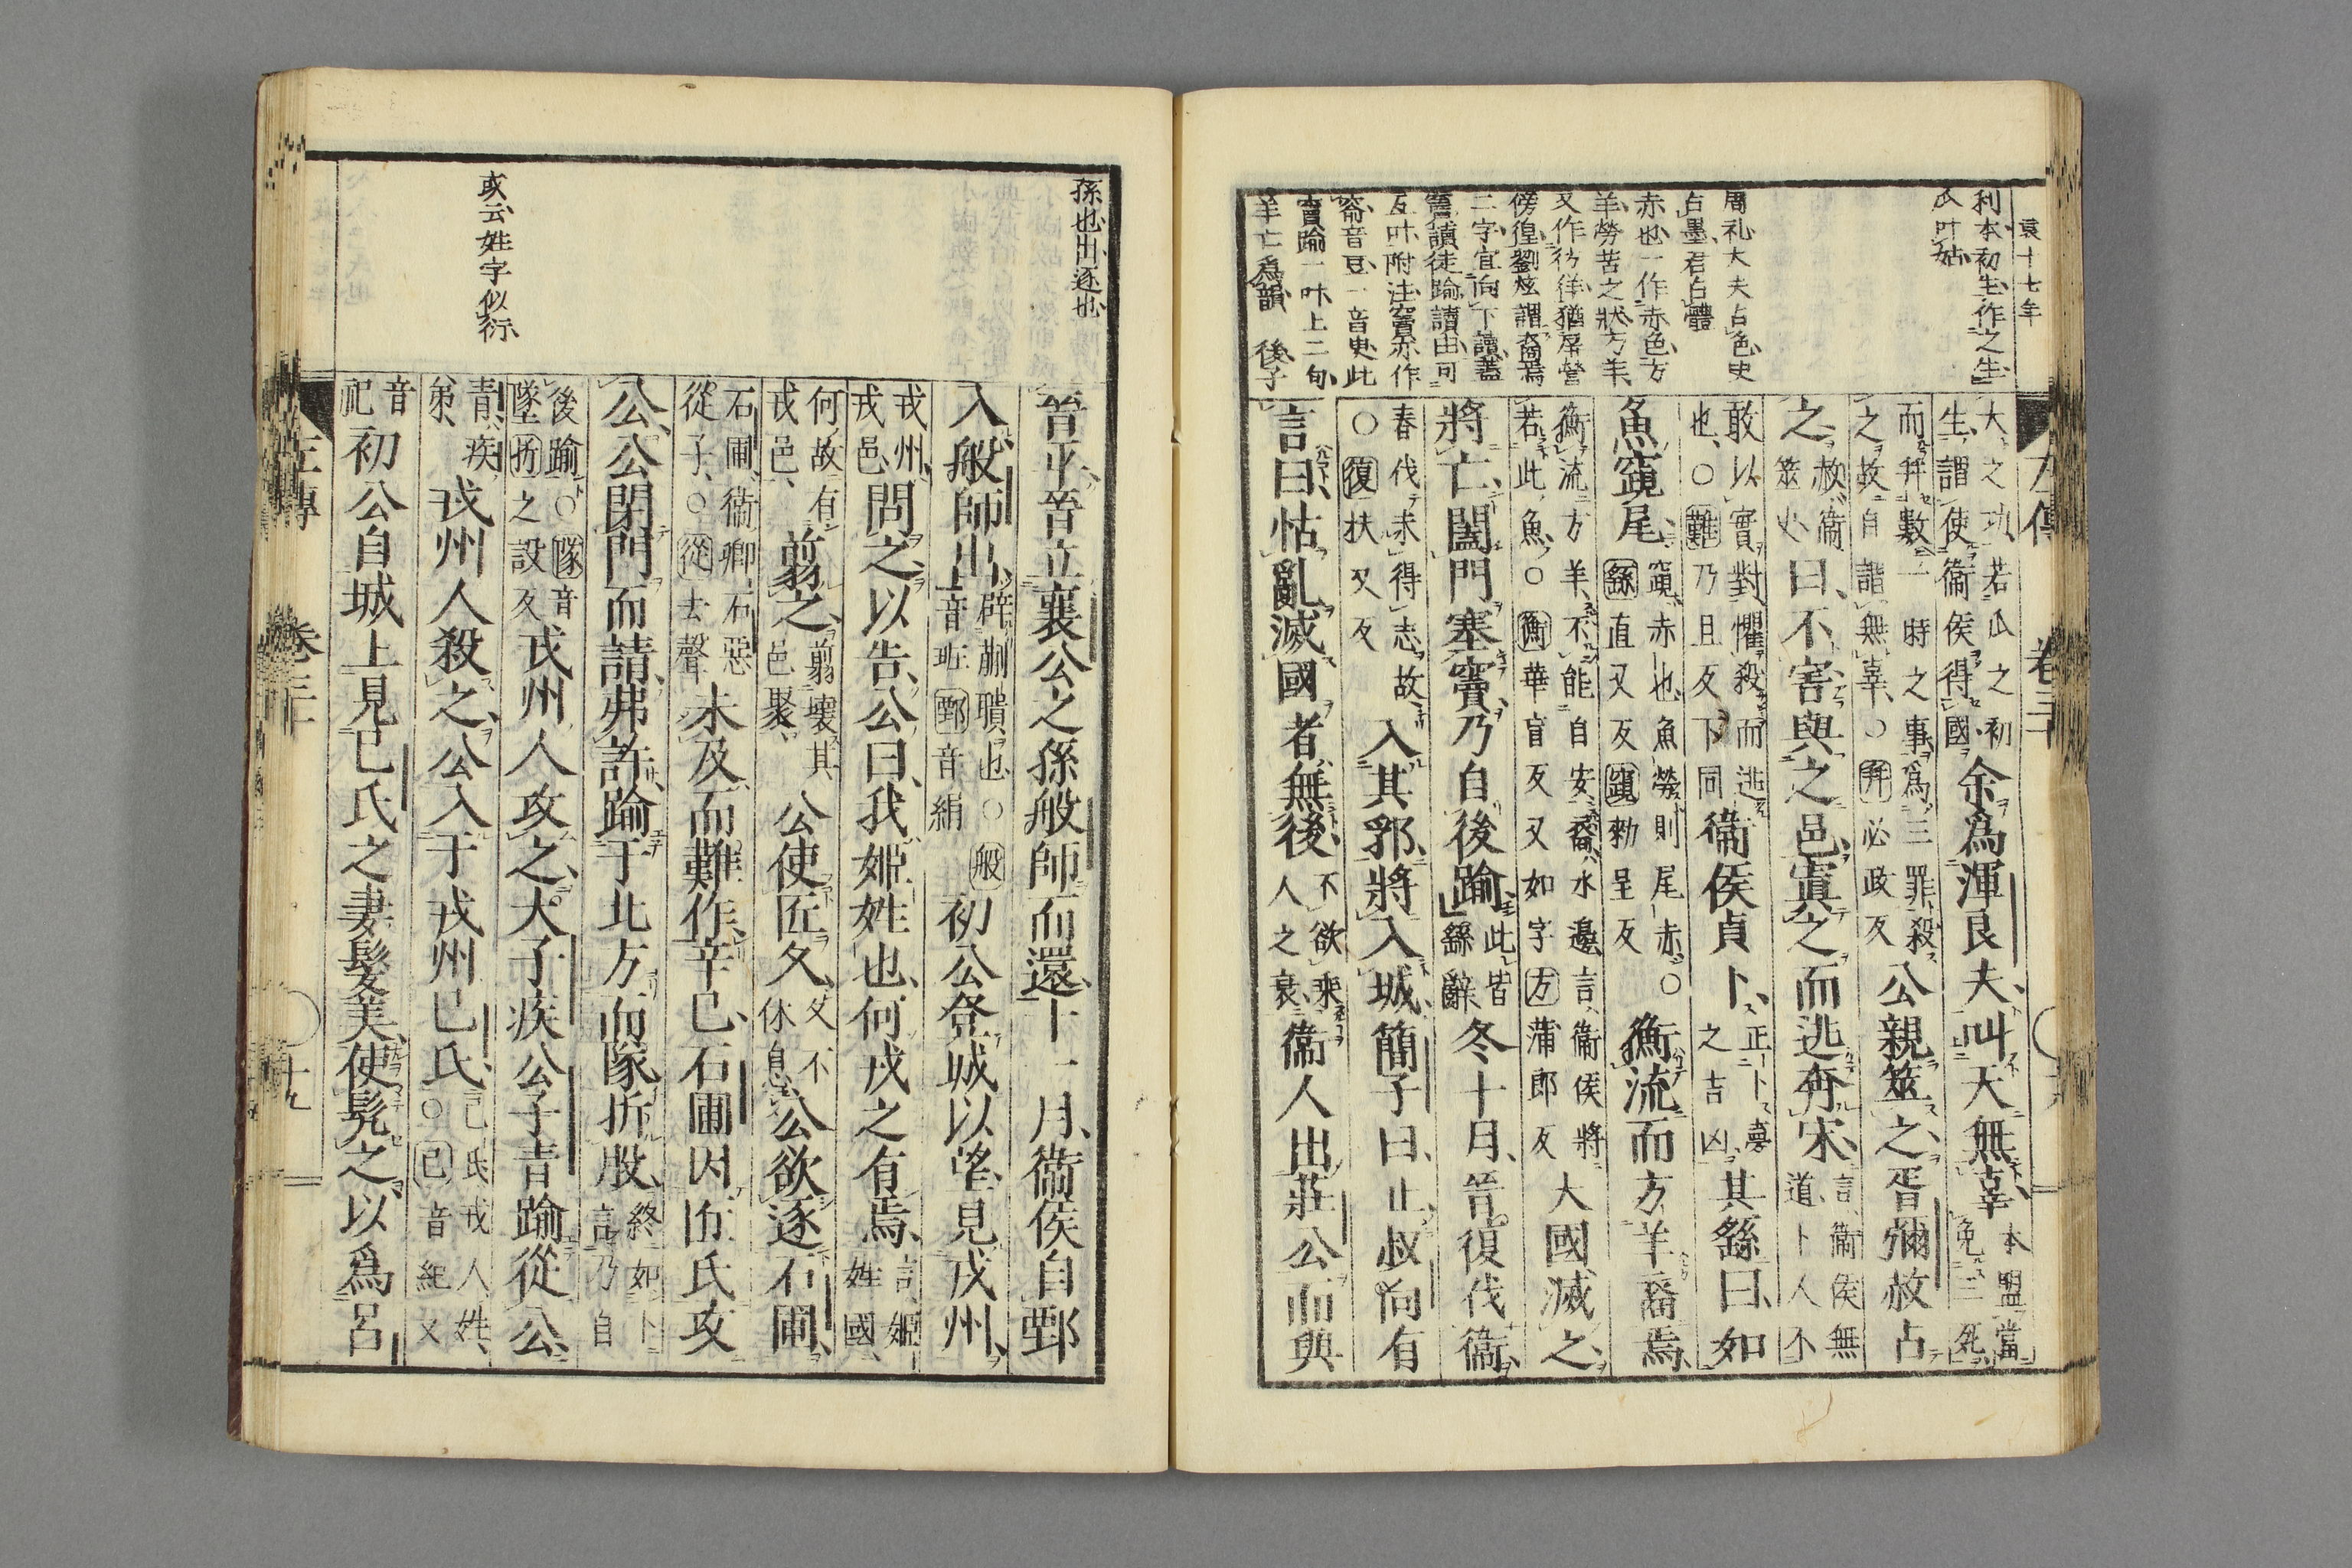 哀十七年
利本初生作之生
瓜叶姑
周礼大夫占色史
占墨君占體
赤也一作赤色方
羊勞苦之狀方羊
又作彷徉猶屏營
傍徨劉炫謂裔焉
二字宜向下讀蓋
竇讀徒踰讀由可
互叶附注竇亦作
窬音豆一音臾此
竇踰一叶上二句
羊亡爲韻 後子
左傳 卷三十
大之功若瓜之初
生謂使衞侯得國
余爲渾良夫叫天無辜
本盟當
免三死
而幷數一時之事爲三罪殺
之故自謂無辜○幷必政反
公親筮之胥彌赦占
之
赦衞
筮史
曰不害與之邑寘之而逃奔宋
言衞侯無
道卜人不
敢以實對懼殺而逃
也○難乃旦反下同
衞侯貞卜
正卜夢
之吉凶
其繇曰如
魚竀尾
竀赤也魚勞則尾赤○
繇直又反竀勑呈反
衡流而方羊裔焉
衡流方羊不能自安裔水邊言衞侯將
若此魚○衡華盲反又如字方蒲郎反
大國滅之
將亡闔門塞竇乃自後踰
此皆
繇辭
冬十月晉復伐衞
春伐未得志故
○復扶又反
入其郛將入城簡子曰止叔向有
言曰怙亂滅國者無後
不欲乘
人之衰
衞人出莊公而與
孫也出逐也
或云姓字似衍
晉平晉立襄公之孫般師而還十一月衞侯自鄄
入般師出
辟蒯聵也○般
音班鄄音絹
初公登城以望見戎州
戎州
戎邑
問之以告公曰我姬姓也何戎之有焉
言姬
姓國
何故有
戎邑
翦之
翦壞其
邑聚
公使匠久
久不
休息
公欲逐石圃
石圃衞卿石惡
從子○從去聲
未及而難作辛巳石圃因匠氏攻
公公閉門而請弗許踰于北方而隊折股
終如卜
言乃自
後踰○隊音
墜折之設反
戎州人攻之大子疾公子青踰從公
青疾
弟
戎州人殺之公入于戎州己氏
己氏戎人姓
○己音紀又
音
祀
初公自城上見己氏之妻髮美使髡之以爲呂
左傳 卷三十 十九